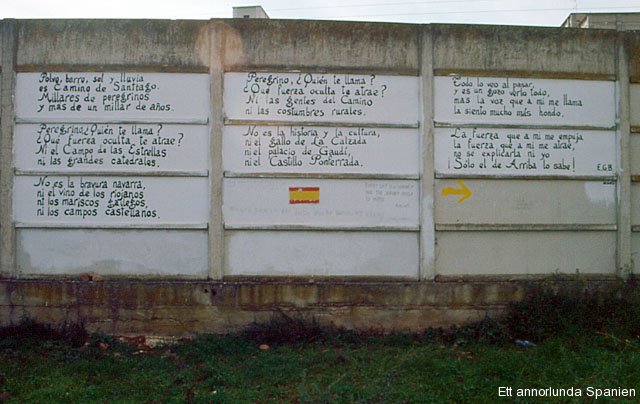 Polvo, barro, sol y lluvia
es Camino de Santiago.
Millares de peregrinos
y mas de un millar de años.
Peregrino ¿Quién te llama?
¿Qué fuerza oculta te atrae?
Ni el Campo de las Estrellas
ni las grandes catedrales.
No es la bravura navarra,
ni el vino de los riojanos
ni los mariscos gallegos,
ni los campos castellanos.
Peregrino, ¿Quién te llama?
¿Qué fuerza oculta te atrae?
Ni las gentes del Camino
ni las costumbres rurales.
No es la historia y la cultura,
ni el gallo de La Calzada
ni el palacio de Gaudí,
ni el Castillo Ponferrada.
Todo lo veo al pasar,
y es un gozo verlo todo,
mas la voz que a mi me llama
la siento mucho más hondo.
La fuerza que a mi me empuja
la fuerza que a mi me atrae,
no se explicarla ni yo
¡Solo el de Arriba lo sabe!
E.G.B.
Ett annorlunda Spanien